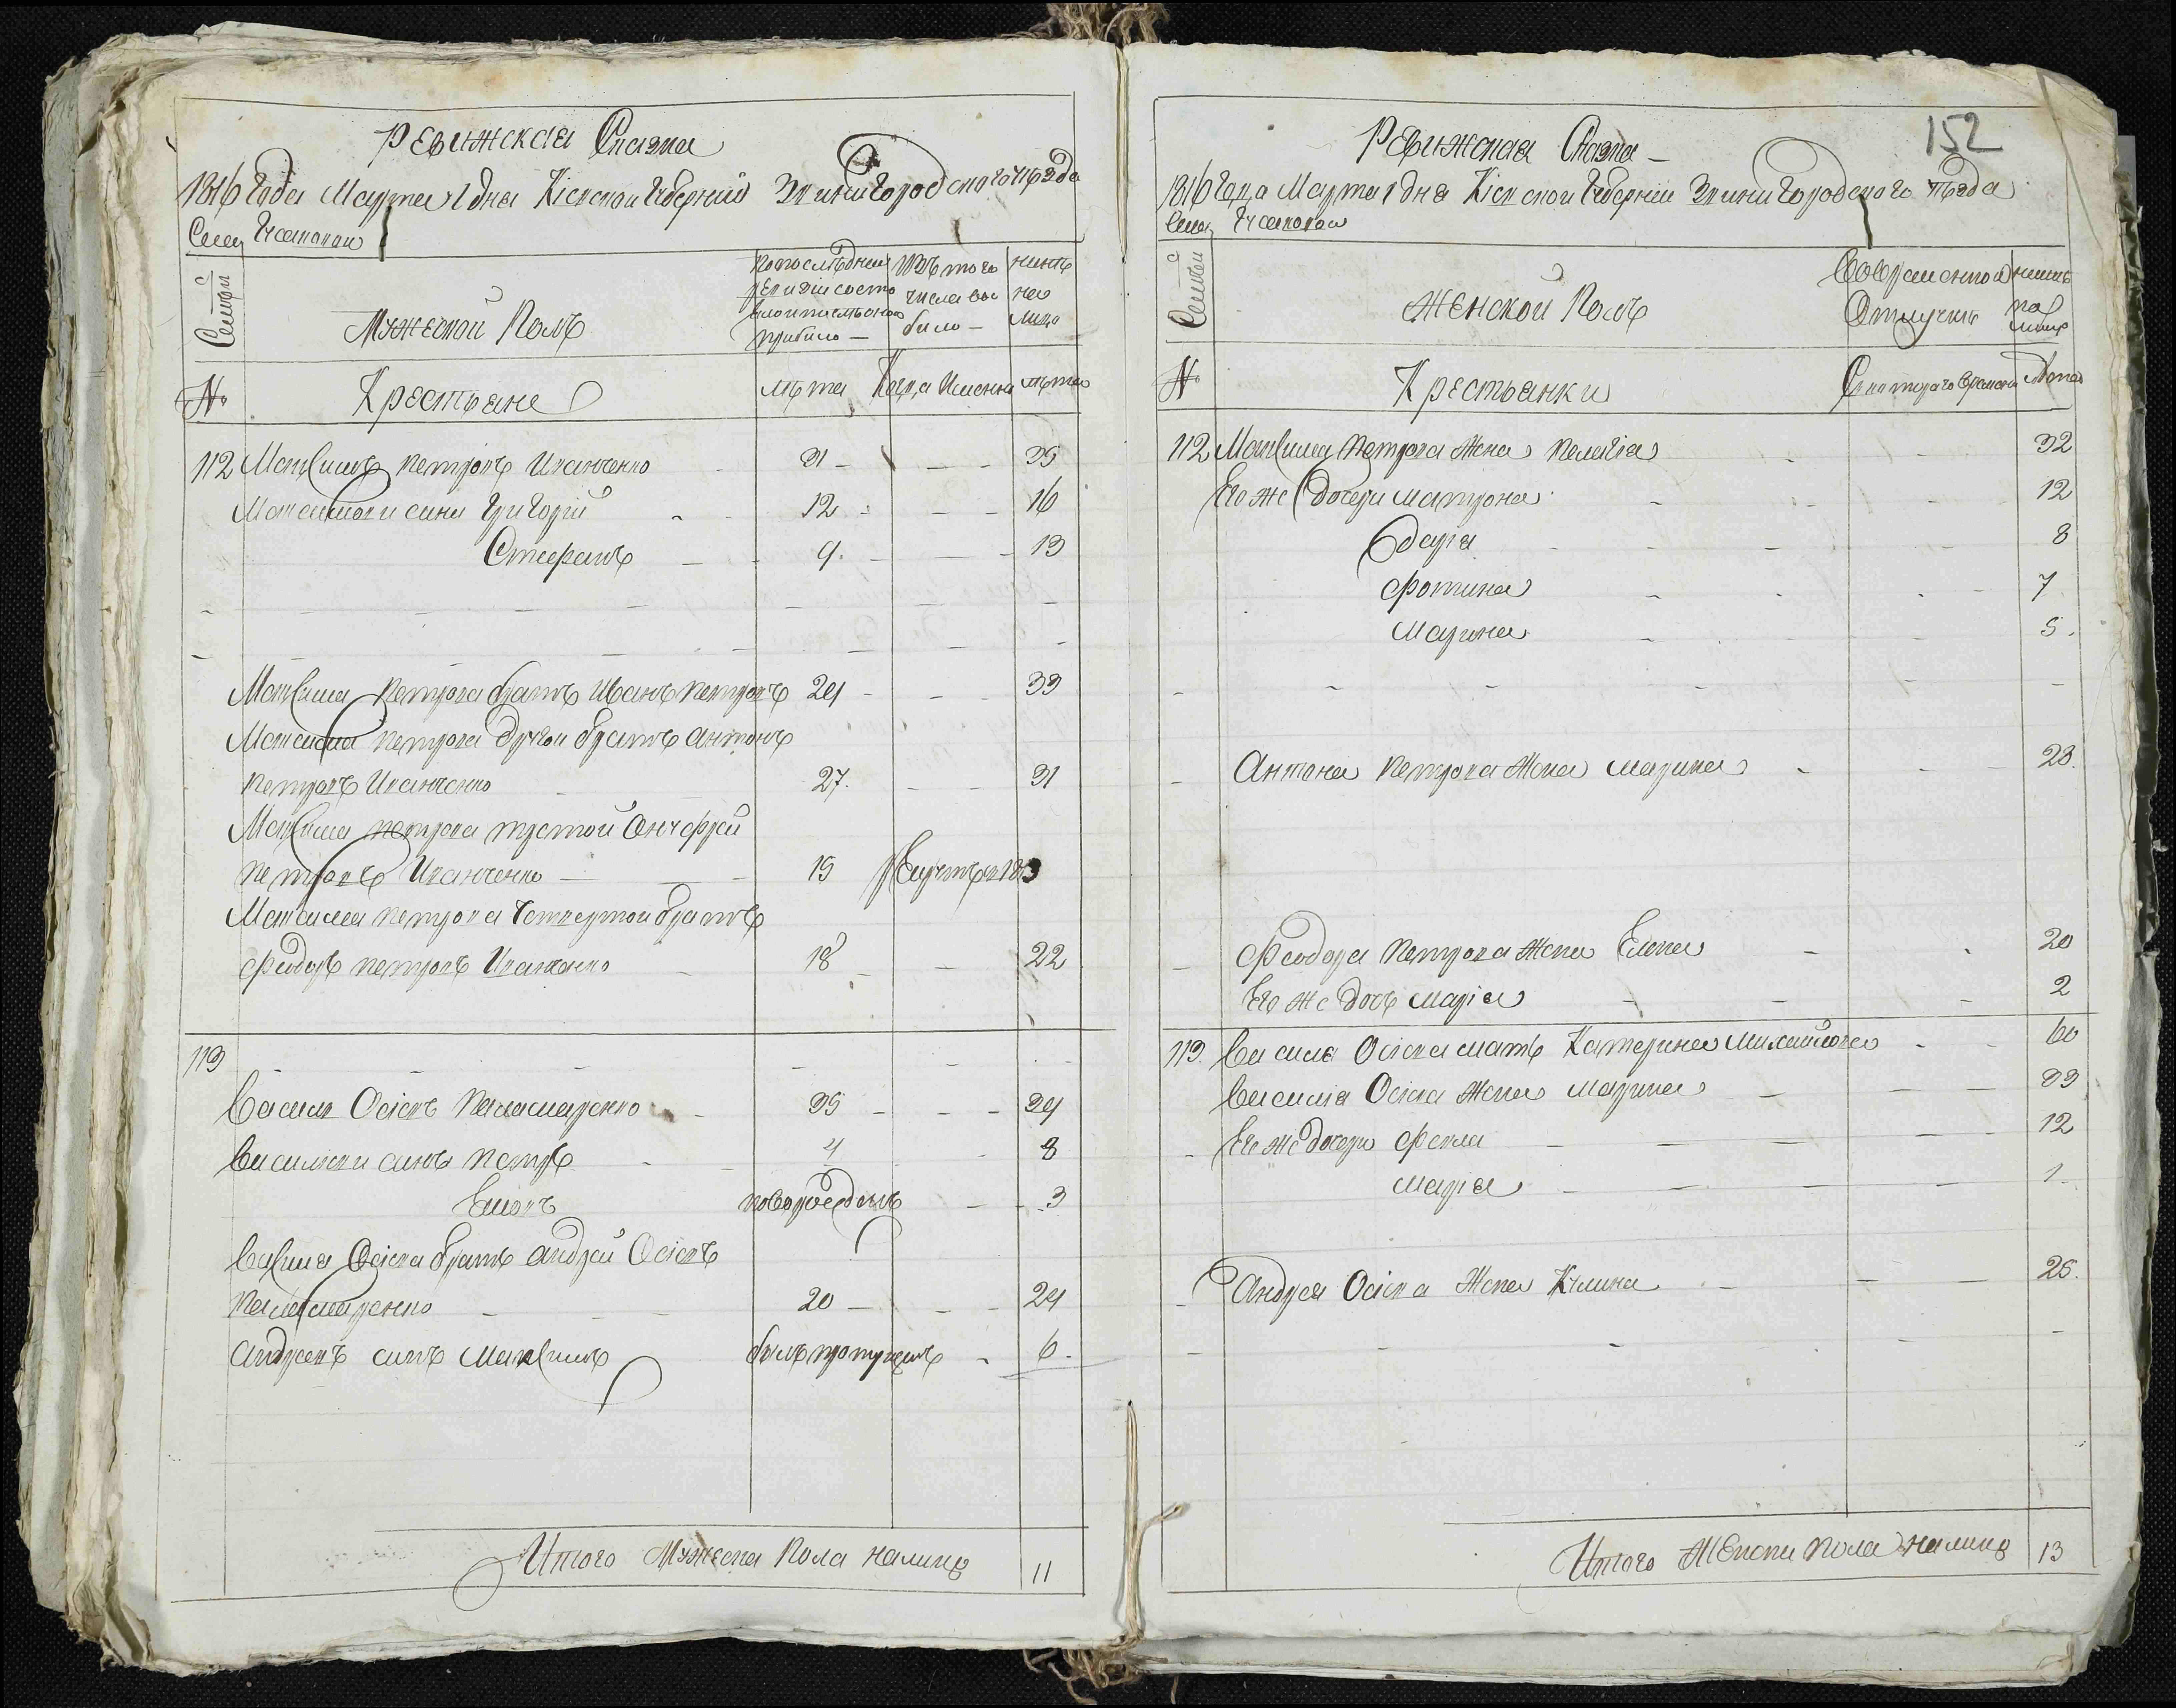 Ревижская Сказка
1816 года Марта 1 дня Кіевской Губерніи Звинигородского уезда
Села Гусаковки
Семьи
Мужеской Полъ
По последней ревизіи состояло и после оного прибыло
Изъ того числа выбыло
ныне на лицо
№
Крестьяне
лета
Когда Именно
лета
112 Максимъ Петровъ Иванченко 31 35
Максимови сини Григорій 12 16
Стефанъ 9 13
Максима Петрова братъ Иванъ Петровъ 29 33
Максима Петрова другои братъ Антонъ
Петровъ Иванченко 27 31
Максима Петрова третой Онуфрей
Петровъ Иванченко 15 рекрутъ в 1813
Максима Петрова Четвертои братъ
Феодоръ Петровъ Иванченко 18 22
113
Василь Осіевъ Паламаренко 35 39
Василеви синъ Петръ 4 8
новорожденъ 3
Василя Осіева братъ Андрей Осіевъ
Паламаренко 20 24
Андреевъ синъ Максимъ былъ пропущенъ 6
Итого Мужеска Пола налицо 11
152
Ревижская Сказка
1816 года Марта 1 дня Кіевской Губерніи Звинигородского уезда
Села Гусаковки
Семьи
Женской Полъ
Во временной Отлучке
ныне на лицо
№
Крестьянки
С которого времени
Лета
112 Максима Петрова Жена Пелагіа 32
Его же Дочери Матрона 12
Дарія 8
Фотина 7
Марина 5
Антона Петрова Жена Марина 28
Феодора Петрова Жена Елена 20
Его же Дочь Марія 2
113 Василя Осіева мать Катерина Михайлова 60
Василія Осіева Жена Марина 33
Его же Дочери Фекла 12
Марія 1
Андрея Осіева Жена Кулина 25
Итого Женска Пола налицо 13